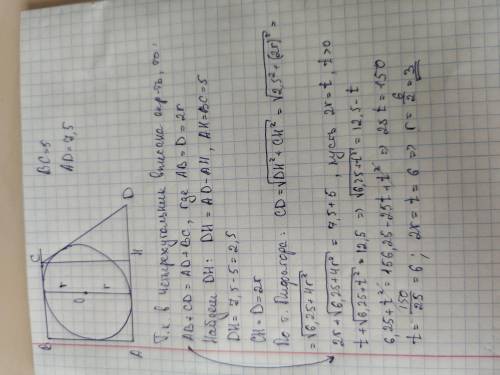 BC=5
AD=7,5
B
C
D
A
H
O
r
r
Т.к. в четырехугольник вписана окр-ть, то:
AB+CD=AD+BC, где AB=D=2r
Найдем DH: DH=AD-AH, AH=BC=5
DH=7,5-5=2,5
CH=D=2r
По т. Пифагора: CD=√DH²+CH²=√2,5²+(2r)²=
=√6,25+4r²
2r+√6,25+4r²=7,5+5, пусть 2r=t, t>0
t+√6,25+t²=12,5 ⇒ √6,25+t²=12,5-t
6,25+t²=156,25-25t+t² ⇒ 25t=150
t=150/25=6; 2r=t=6 ⇒ r=6/2=3